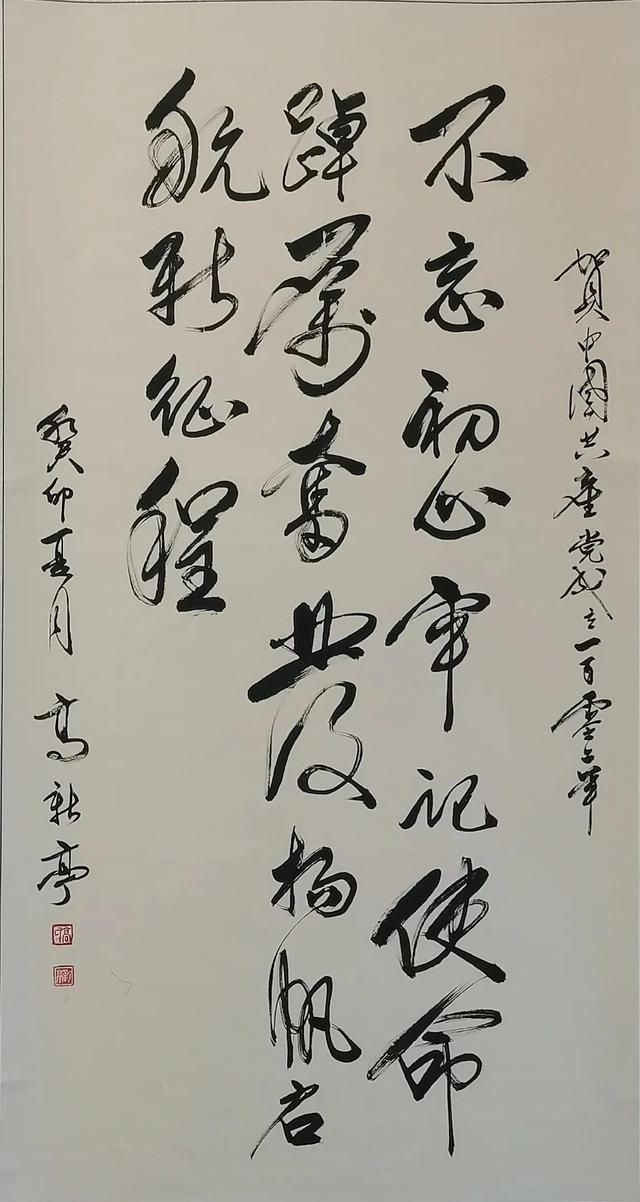 賀中國共產党成立一百零二年
不忘初心牢记使命
踔厲奮發扬帆启
航新征程
癸卯夏月 高新亭